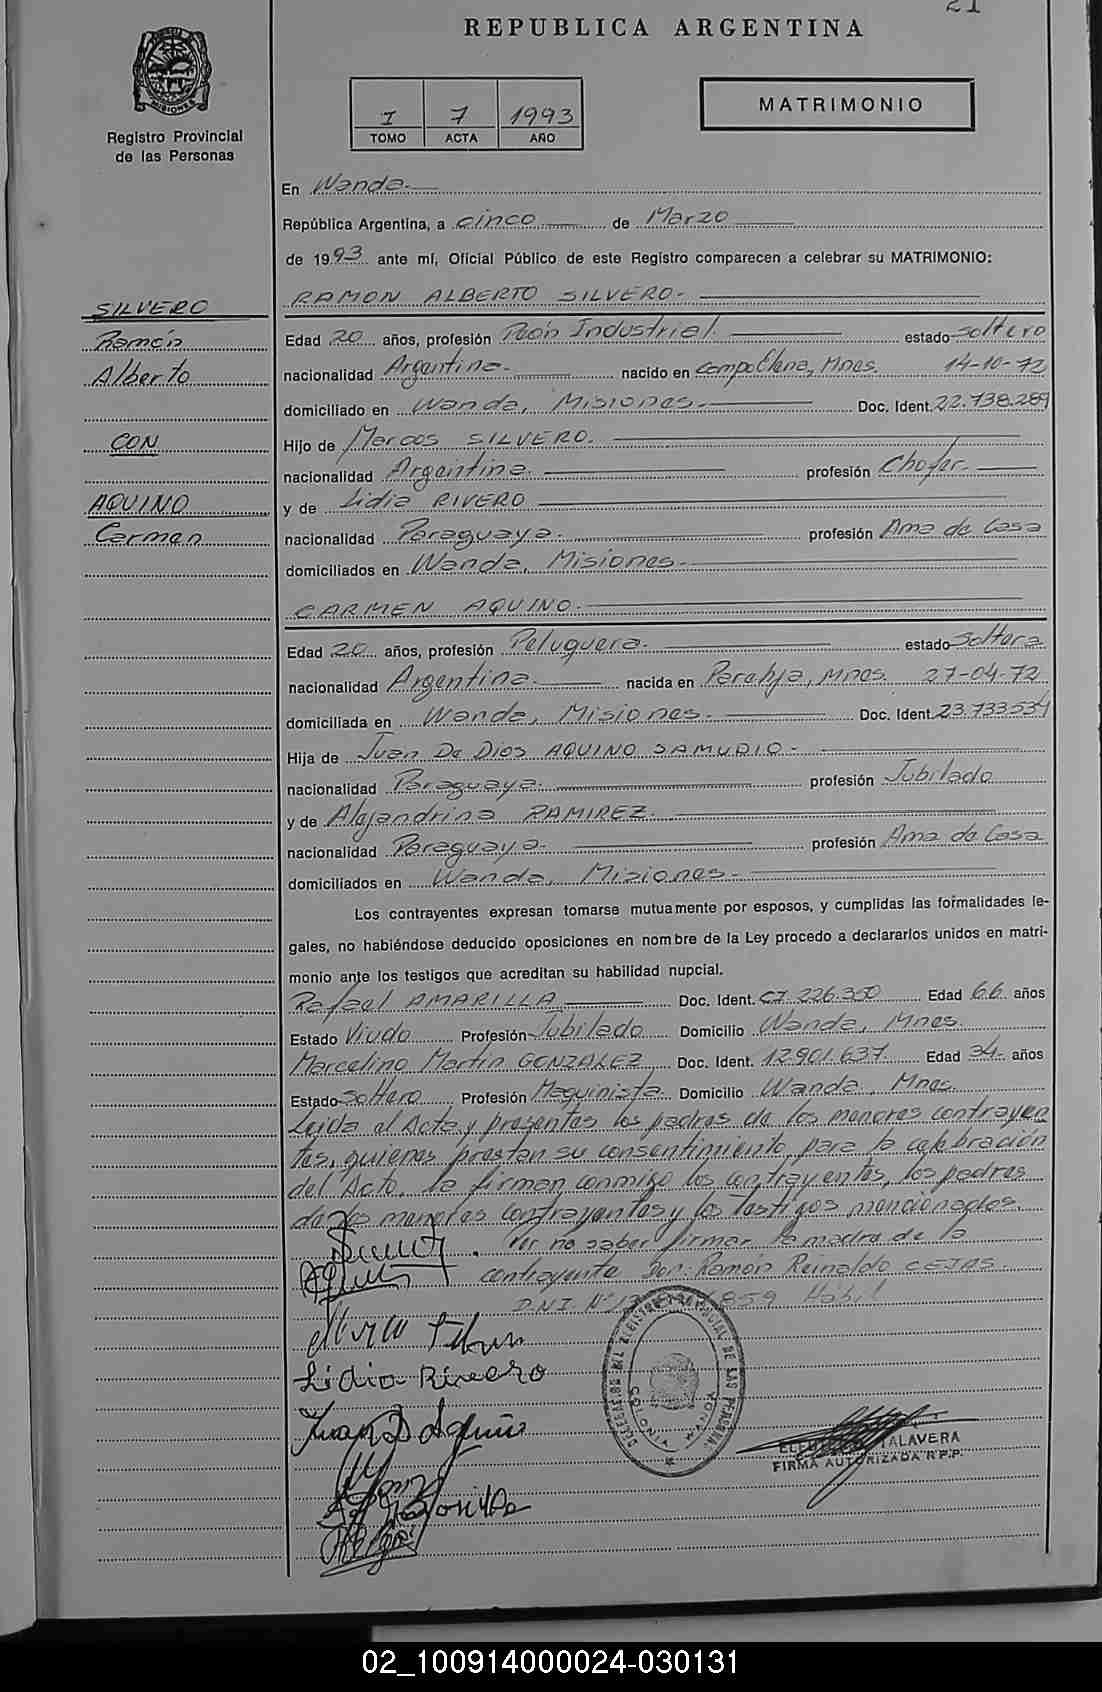 21
REPUBLICA ARGENTINA
MISIONES
Registro Provincial
de las Personas
I 7 1993
TOMO ACTA AÑO
MATRIMONIO
En Wanda.
República Argentina, a cinco de Marzo
de 1993 ante mí, Oficial Público de este Registro comparecen a celebrar su MATRIMONIO:
RAMON ALBERTO SILVERO.
SILVERO
Ramón
Alberto
CON
AQUINO
Carmen
Edad 20 años, profesión Peón Industrial. estado soltero
nacionalidad Argentina. nacido en Campo Elena, Mnes. 14-10-72
domiciliado en Wanda, Misiones. Doc. Ident. 22.738.289
Hijo de Marcos SILVERO.
nacionalidad Argentina. profesión Chofer.
y de Lidia RIVERO
nacionalidad Paraguaya. profesión Ama de Casa
domiciliados en Wanda, Misiones.
CARMEN AQUINO.
Edad 20 años, profesión Peluquera. estado Soltera
nacionalidad Argentina. nacida en Mnes. 27-04-72
domiciliada en Wanda, Misiones. Doc. Ident. 23.733534
Hija de Juan De Dios AQUINO SAMUDIO.
nacionalidad Paraguaya. profesión Jubilado
y de Alejandrina RAMIREZ.
nacionalidad Paraguaya. profesión Ama de Casa
domiciliados en Wanda, Misiones.
Los contrayentes expresan tomarse mutuamente por esposos, y cumplidas las formalidades le-
gales, no habiéndose deducido oposiciones en nombre de la Ley procedo a declararlos unidos en matri-
monio ante los testigos que acreditan su habilidad nupcial.
Rafael AMARILLA Doc. Ident. CI 226.350 Edad 66 años
Estado Viudo Profesión Jubilado Domicilio Wanda, Mnes.
Marcelino Martin GONZALEZ Doc. Ident. 12.901.637 Edad 34 años
Estado soltero Profesión Maquinista Domicilio Wanda, Mnes.
Leida el Acta y presentes los padres de los menores contrayen
tes, quienes prestan su consentimiento para la celebración
del Acto, la firman conmigo los contrayentes, los padres
de los menores contrayentes y los testigos mencionados.
Por no saber firmar la madre de la
contrayente Don: Ramón Reinaldo CEJAS.
D.N.I. Nº 859 Hábil
Lidia Rivero
Juan D Aquino
DELEGACION DEL REGISTRO PROVINCIAL DE LAS PERSONAS
MISIONES WANDA
TALAVERA
FIRMA AUTORIZADA R.P.P.
02_100914000024-030131